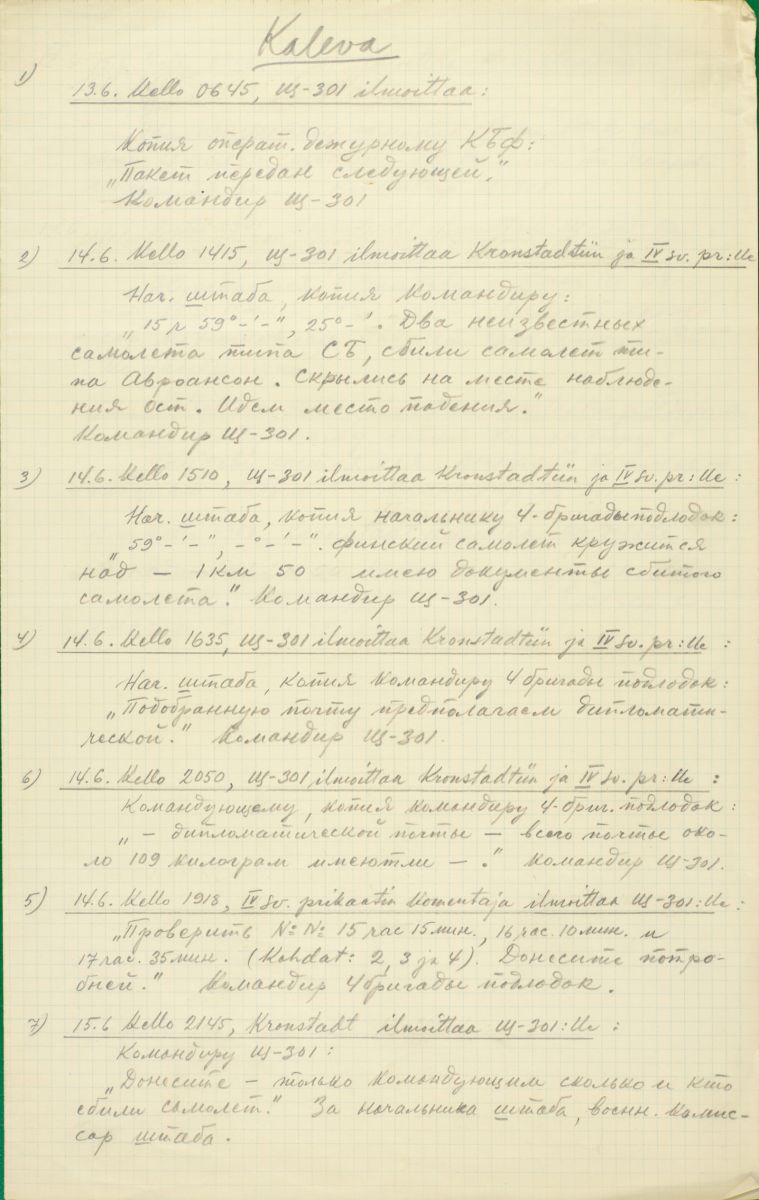 Kaleva
1) 13.6. Kello 0645, Щ-301 ilmoittaa:
Копия операт. дежурному КБФ:
„Пакет передан следующей."
Командир Щ-301
2) 14.6. Kello 1415, Щ-301 ilmoittaa Kronstadtiin ja IV sv. pr:lle
Нач. штаба, копия командиру:
„15 ч 59°-'-", 25°-'. Два неизвестных
самолета типа СБ, сбили самолет ти-
па Авроансон. Скрылись на месте наблюде-
ния ост. Идем место падения."
Командир Щ-301.
3) 14.6. Kello 1510, Щ-301 ilmoittaa Kronstadtiin ja IV sv. pr:lle :
Нач. штаба, копия начальнику 4-бригады подлодок:
„59°-'-", -°-'-". финский самолет кружится
над — 1 км 50 имею документы сбитого
самолета." Командир Щ-301.
4) 14.6. Kello 1635, Щ-301 ilmoittaa Kronstadtiin ja IV sv. pr:lle :
Нач. штаба, копия командиру 4 бригады подлодок:
„Подобранную почту предполагаем дипломати-
ческой." Командир Щ-301.
6) 14.6. Kello 2050, Щ-301 ilmoittaa Kronstadtiin ja IV sv. pr:lle :
Командующему, копия командиру 4-бриг. подлодок:
„ — дипломатической почты — всего почты око-
ло 109 килограм имеютли — ." командир Щ-301.
5) 14.6. Kello 1918, IV sv. prikaatin komentaja ilmoittaa Щ-301:lle :
„Проверить №№ 15 час 15 мин., 16 час. 10 мин. и
17 час. 35 мин. (Kohdat: 2, 3 ja 4). Донесите потро-
бней." Командир 4 бригады подлодок.
7) 15.6 Kello 2145, Kronstadt ilmoittaa Щ-301:lle :
Командиру Щ-301:
„Донесите — только командующим сколько и кто
сбили самолет." За начальника штаба, воен. комис-
сар штаба.